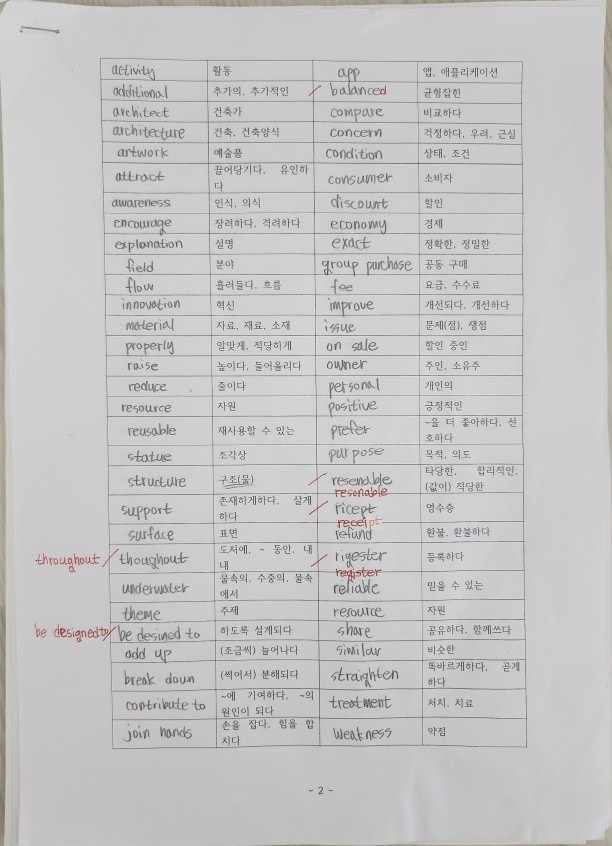 activity 활동 app 앱, 애플리케이션
additional 추가의, 추가적인 balanced 균형잡힌
architect 건축가 compare 비교하다
architecture 건축, 건축양식 concern 걱정하다, 우려, 근심
artwork 예술품 condition 상태, 조건
attract 끌어당기다, 유인하다 consumer 소비자
awareness 인식, 의식 discount 할인
encourage 장려하다, 격려하다 economy 경제
explanation 설명 exact 정확한, 정밀한
field 분야 group purchase 공동 구매
flow 흘러들다, 흐름 fee 요금, 수수료
innovation 혁신 improve 개선되다, 개선하다
material 자료, 재료, 소재 issue 문제(점), 쟁점
properly 알맞게, 적당하게 on sale 할인 중인
raise 높이다, 들어올리다 owner 주인, 소유주
reduce 줄이다 personal 개인의
resource 자원 positive 긍정적인
reusable 재사용할 수 있는 prefer ~을 더 좋아하다, 선호하다
statue 조각상 purpose 목적, 의도
structure 구조(물) resenable 타당한, 합리적인, (값이) 적당한
resonable
support 존재하게하다, 살게하다 ricept 영수증
receipt
surface 표면 refund 환불, 환불하다
throughout thoughout 도처에, ~ 동안, 내내 rigester 등록하다
register
underwater 물속의, 수중의, 물속에서 reliable 믿을 수 있는
theme 주제 resource 자원
be designed to be desined to 하도록 설계되다 share 공유하다, 함께쓰다
add up (조금씩) 늘어나다 similar 비슷한
break down (썩어서) 분해되다 straighten 똑바르게하다, 곧게하다
contribute to ~에 기여하다, ~의 원인이 되다 treatment 처치, 치료
join hands 손을 잡다, 힘을 합치다 weakness 약점
- 2 -